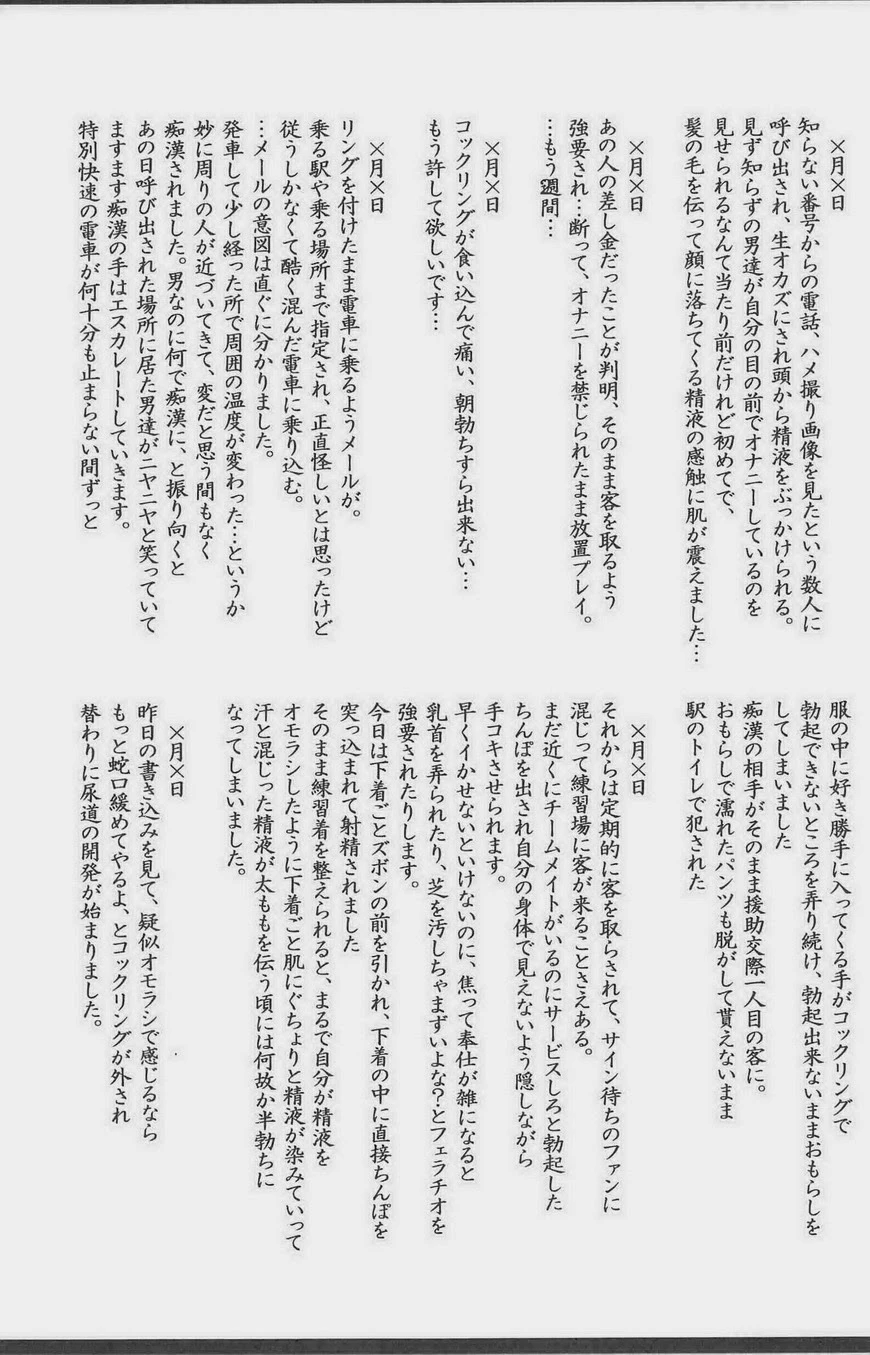 ×月×日
知らない番号からの電話、ハメ撮り画像を見たという数人に
呼び出され、生オカズにされ頭から精液をぶっかけられる。
見ず知らずの男達が自分の目の前でオナニーしているのを
見せられるなんて当たり前だけれど初めてで、
髪の毛を伝って顔に落ちてくる精液の感触に肌が震えました…
×月×日
あの人の差し金だったことが判明、そのまま客を取るよう
強要され…断って、オナニーを禁じられたまま放置プレイ。
…もう週間…
×月×日
コックリングが食い込んで痛い、朝勃ちすら出来ない…
もう許して欲しいです…
×月×日
リングを付けたまま電車に乗るようメールが。
乗る駅や乗る場所まで指定され、正直怪しいとは思ったけど
従うしかなくて酷く混んだ電車に乗り込む。
…メールの意図は直ぐに分かりました。
発車して少し経った所で周囲の温度が変わった…というか
妙に周りの人が近づいてきて、変だと思う間もなく
痴漢されました。男なのに何で痴漢に、と振り向くと
あの日呼び出された場所に居た男達がニヤニヤと笑っていて
ますます痴漢の手はエスカレートしていきます。
特別快速の電車が何十分も止まらない間ずっと
服の中に好き勝手に入ってくる手がコックリングで
勃起できないところを弄り続け、勃起出来ないままおもらしを
してしまいました
痴漢の相手がそのまま援助交際一人目の客に。
おもらしで濡れたパンツも脱がして貰えないまま
駅のトイレで犯された
×月×日
それからは定期的に客を取らされて、サイン待ちのファンに
混じって練習場に客が来ることさえある。
まだ近くにチームメイトがいるのにサービスしろと勃起した
ちんぽを出され自分の身体で見えないよう隠しながら
手コキさせられます。
早くイかせないといけないのに、焦って奉仕が雑になると
乳首を弄られたり、芝を汚しちゃまずいよな?とフェラチオを
強要されたりします。
今日は下着ごとズボンの前を引かれ、下着の中に直接ちんぽを
突っ込まれて射精されました
そのまま練習着を整えられると、まるで自分が精液を
オモラシしたように下着ごと肌にぐちょりと精液が染みていって
汗と混じった精液が太ももを伝う頃には何故か半勃ちに
なってしまいました。
×月×日
昨日の書き込みを見て、疑似オモラシで感じるなら
もっと蛇口緩めてやるよ、とコックリングが外され
替わりに尿道の開発が始まりました。